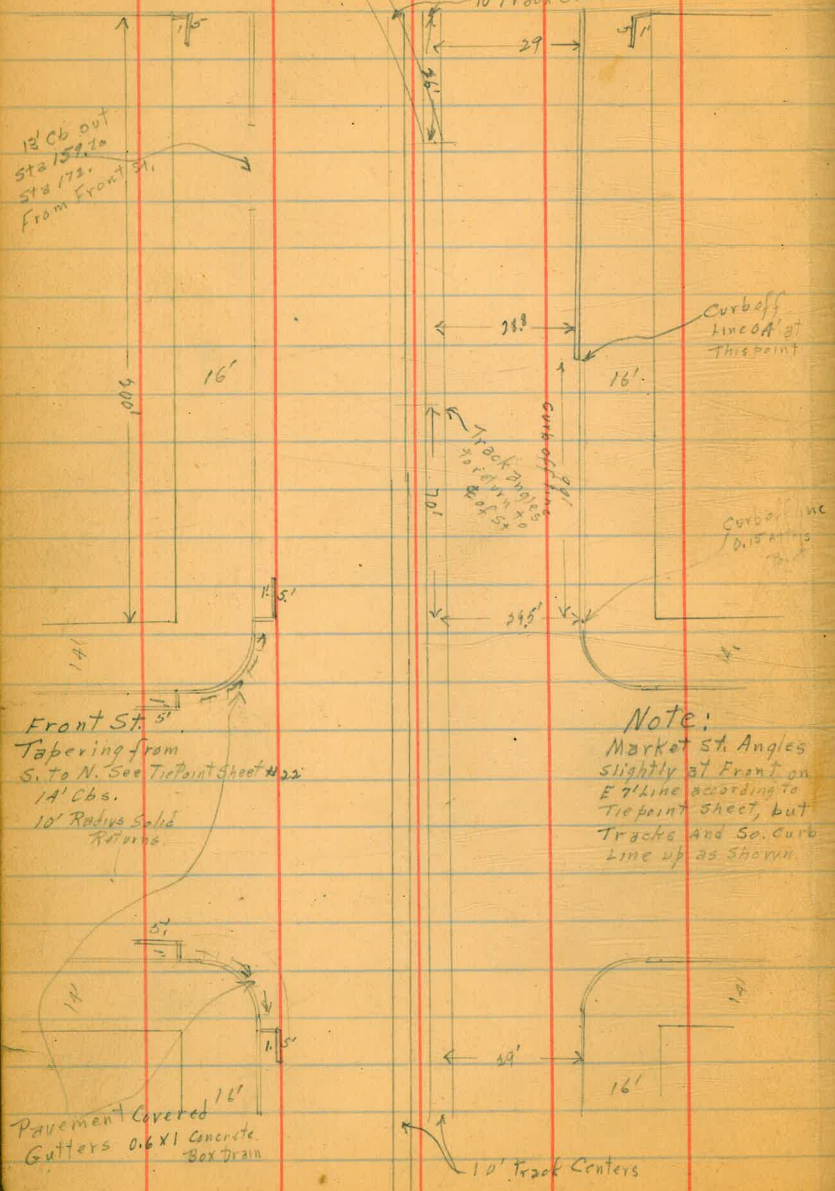 1' 5'
29
5' 1'
36'
13' Cb out
Sta 159. To
Sta 172.
From Front St.
28.8
Curb off
Line 0.4' at
This point
16'
16'
300'
70'
Track angles
to return to
℄ of St
Curb off line
90'
Curb off line
0.15
1' 5'
29.5'
14'
14'
1' 5'
Front St.
Tapering from
S. to N. See Tie Point Sheet #22
14' Cbs.
10' Radius Solid
Returns.
Note:
Market St. Angles
slightly at Front on
E 7' Line according to
Tiepoint Sheet, but
Tracks And So. Curb
Line up as Shown
5'
1'
14'
14'
1' 5'
29'
16'
16'
Pavement Covered
Gutters 0.6 X 1 Concrete
Box Drain
10' Track Centers